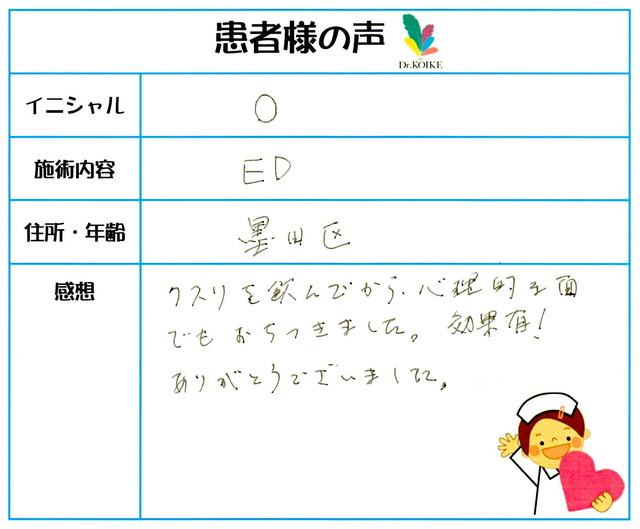 患者様の声
Dr.KOIKE
イニシャル
O
施術内容
ED
住所・年齢
墨田区
感想
クスリを飲んでから、心理的な面
でもおちつきました。効果有!
ありがとうございました。